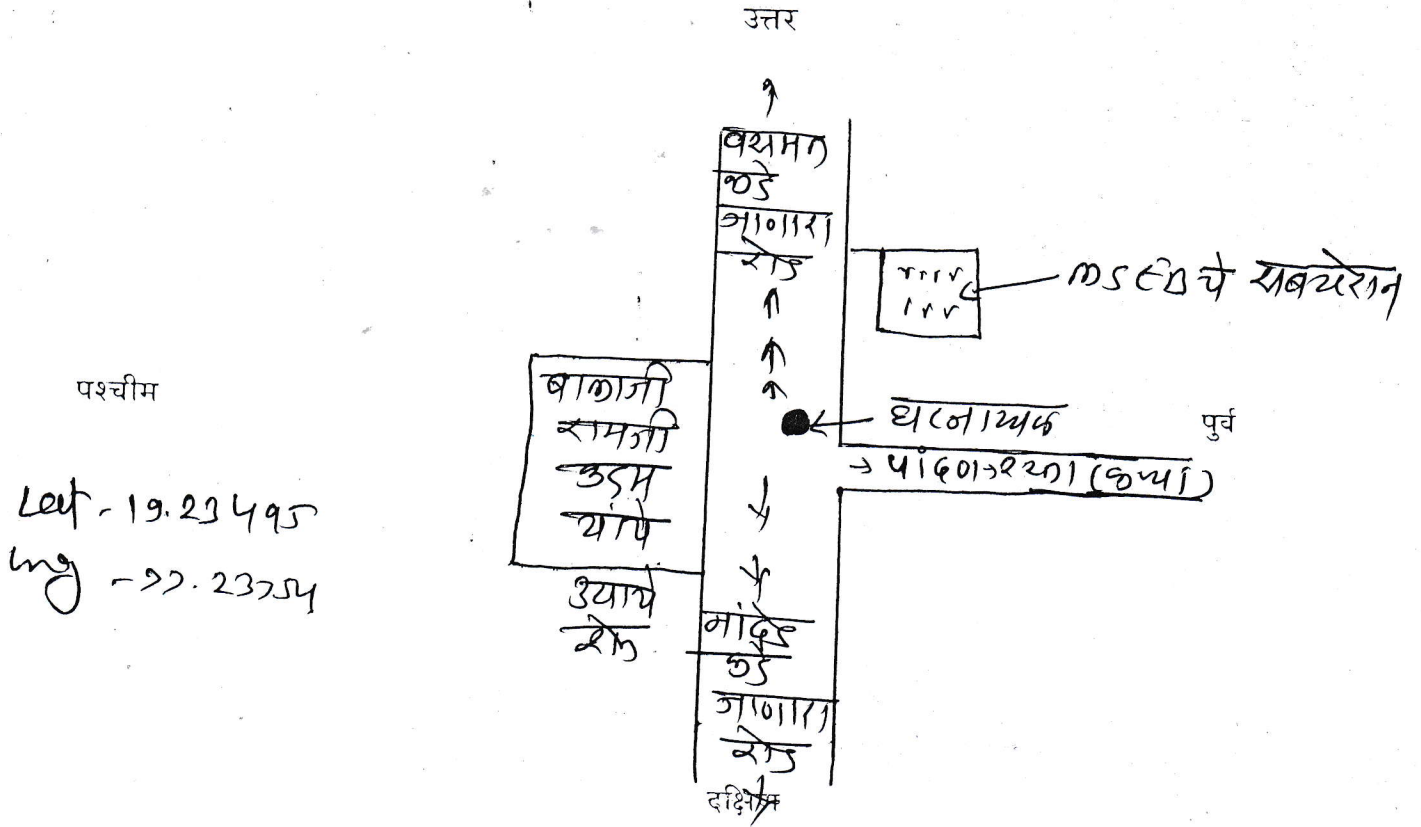 उत्तर
वसमत
कडे
जाणारा
रोड
MSEDचे सबस्टेशन
पश्चीम
बालाजी
रामजी
कदम
यांचे
घटनास्थळ
पुर्व
पांदण रस्ता (कच्चा)
Lat - 19.23495
lng - 77.23754
शेत
नांदेड
कडे
जाणारा
रोड
दक्षिण